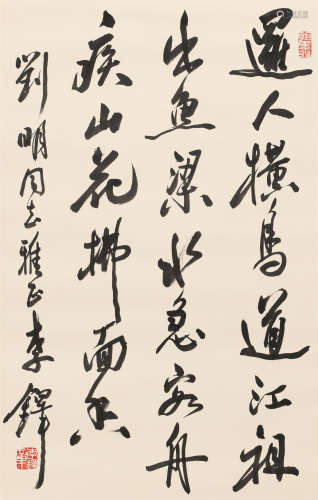 邏人横鳥道江祖
出魚梁水急客舟
疾山花拂面香
劉明同志雅正李鐸